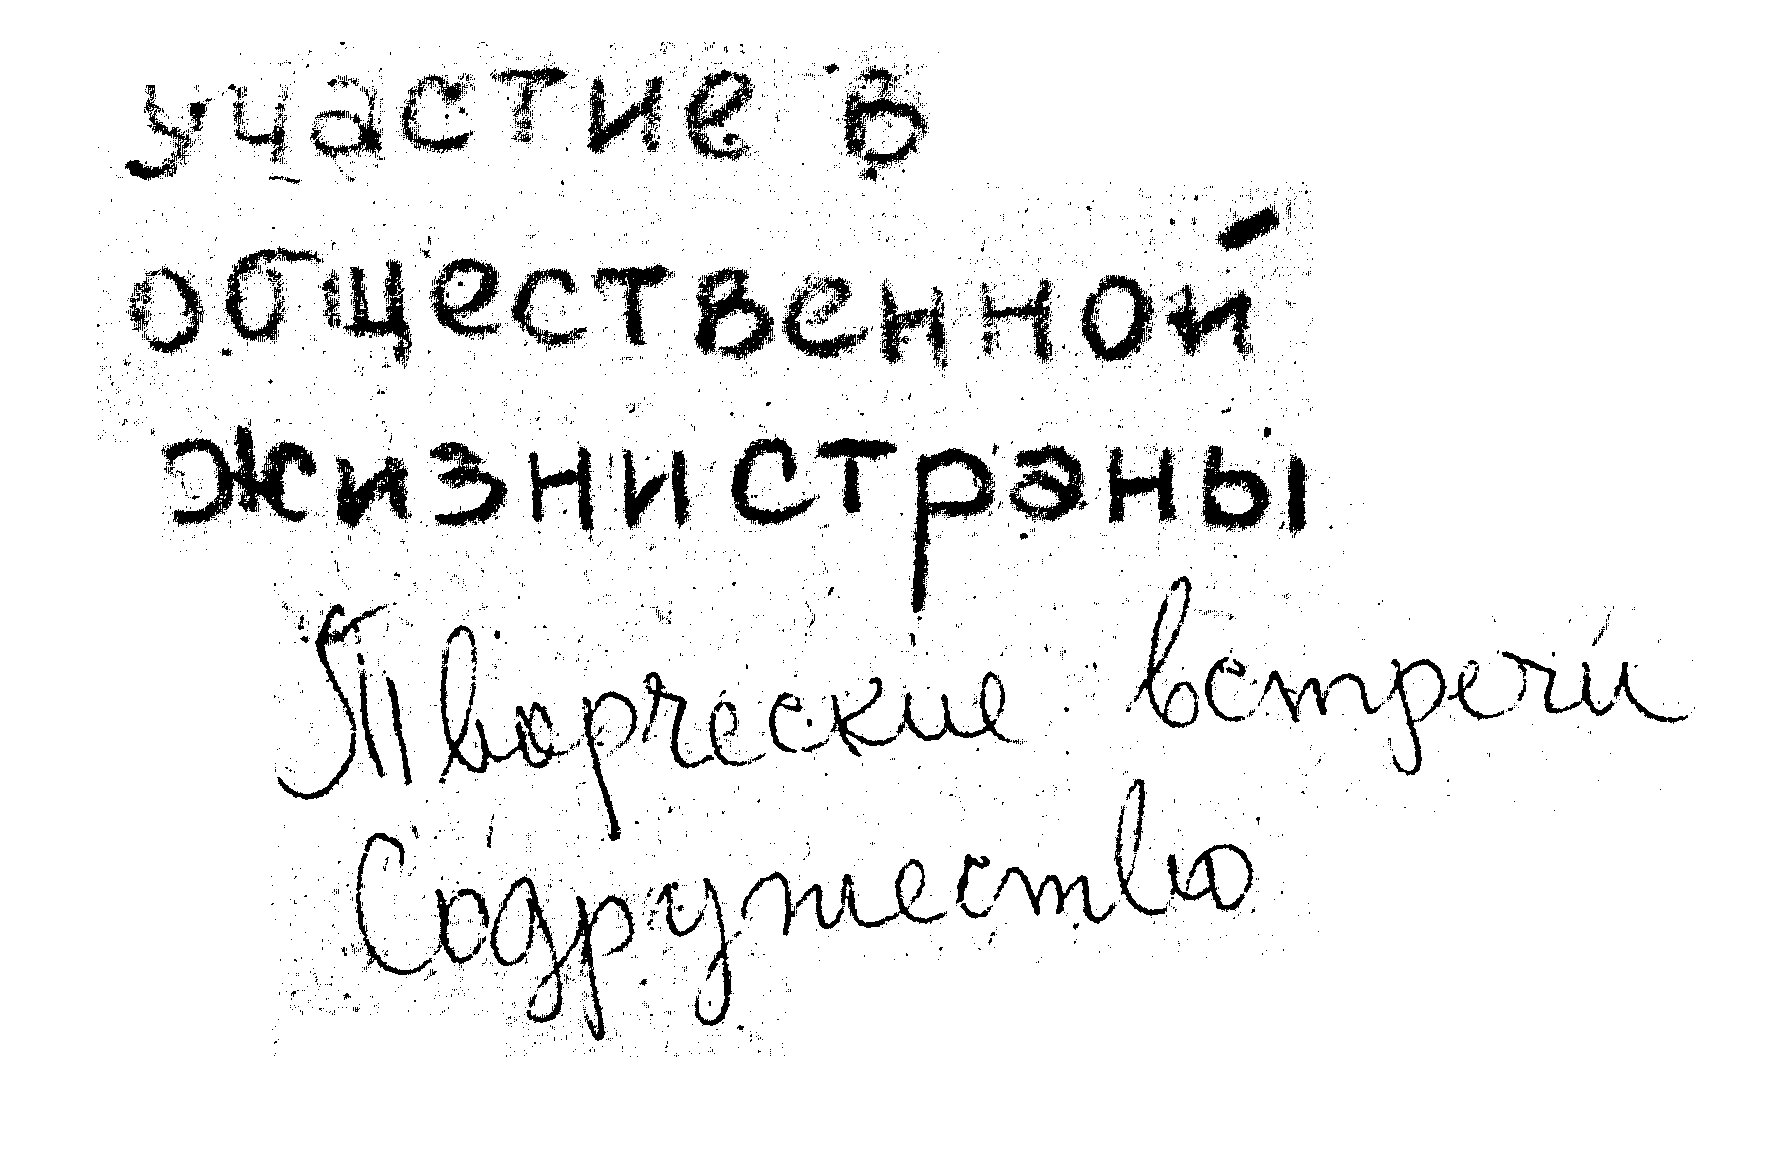 участие в
общественной
жизни страны
Творческие встречи
Содружество